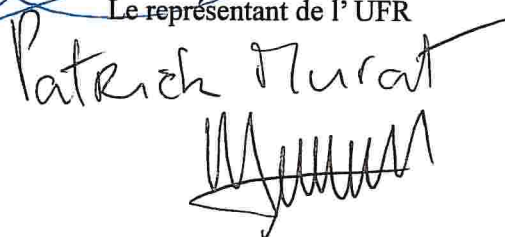 Le représentant de l' UFR
Patrick Murat